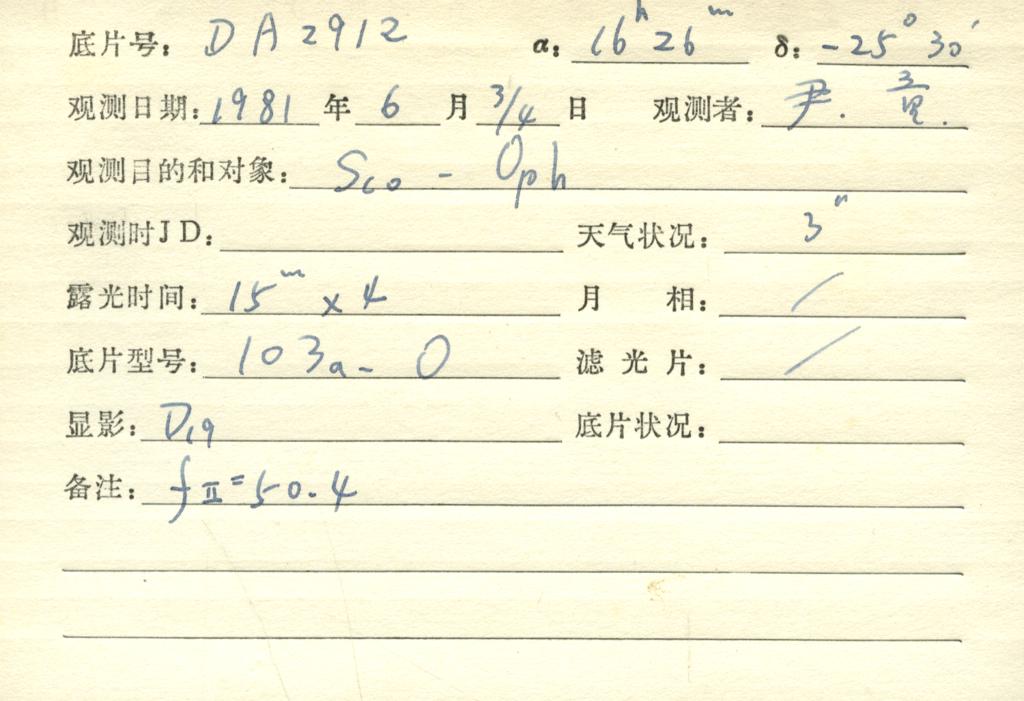 底片号: DA2912 α: 16ʰ 26ᵐ δ: -25° 30′
观测日期: 1981 年 6 月 3/4 日 观测者: 尹. 童.
观测目的和对象: Sco - Oph
观测时JD: 天气状况: 3"
露光时间: 15ᵐ x 4 月 相: /
底片型号: 103a-O 滤光片: /
显影: D19 底片状况:
备注: fII=50.4